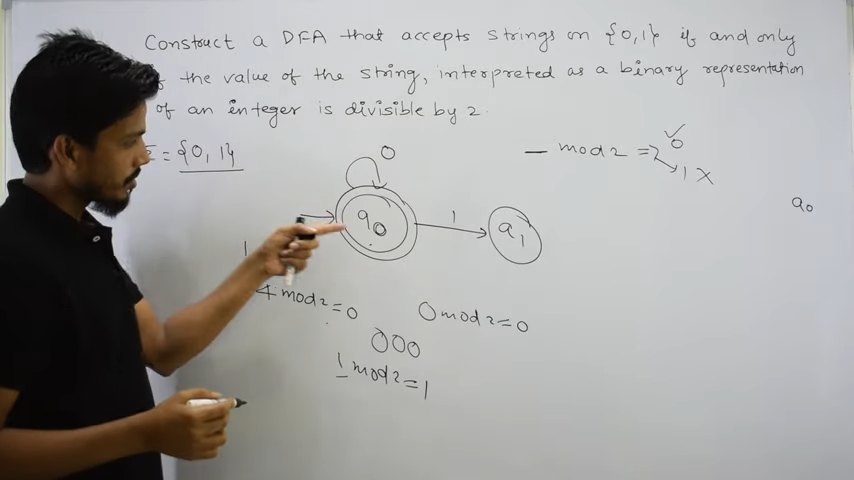 Construct a DFA that accepts strings on {0,1} if and only
the value of the string, interpreted as a binary representation
of an integer is divisible by 2.
= {0, 1}
0
— mod 2 =
0 ✓
1 X
q0
q0
1
q1
1
4 mod 2 = 0
0 mod 2 = 0
000
1 mod 2 = 1